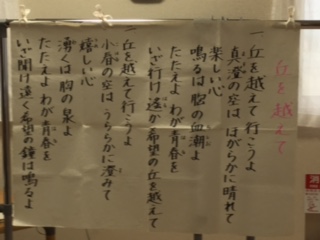 丘を越えて
一 丘を越えて行こうよ
真澄の空は ほがらかに晴れて
楽しい心
鳴るは胸の血潮よ
たたえよ わが青春を
いざ行け 遥か希望の丘を越えて
二 丘を越えて行こうよ
小春の空は うららかに澄みて
嬉しい心
湧くは胸の泉よ
たたえよ わが青春を
いざ聞け 遠く希望の鐘は鳴るよ